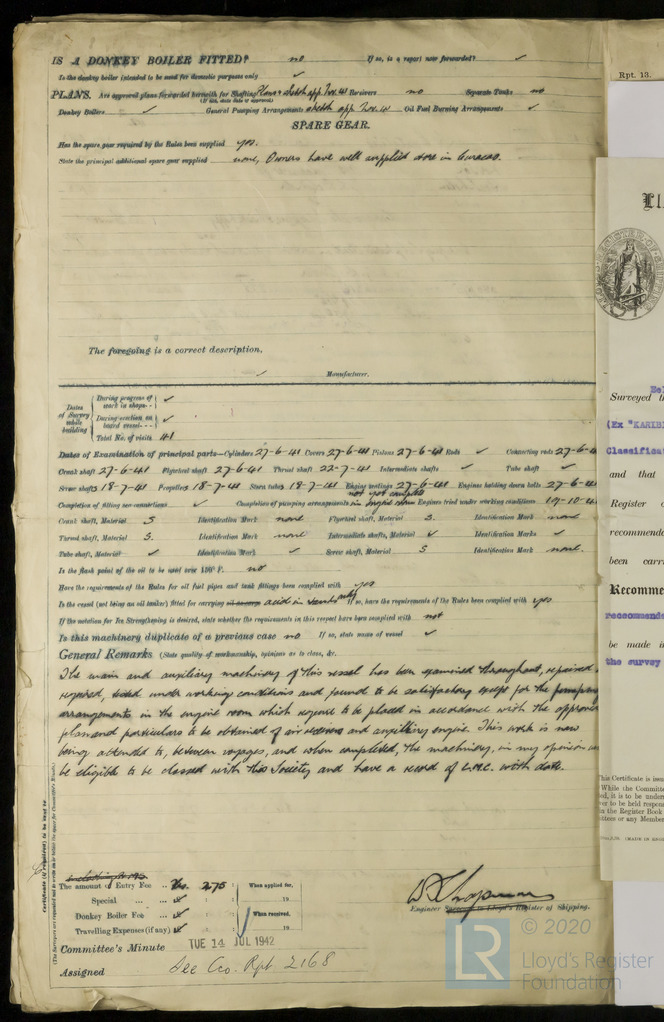 IS A DONKEY BOILER FITTED? no If so, is a report now forwarded? ✓
Is the donkey boiler intended to be used for domestic purposes only ✓
PLANS. Are approved plans forwarded herewith for Shafting Plans sketch app Nov 41 Receivers no Separate Tanks no
(If not, state date of approval)
Donkey Boilers ✓ General Pumping Arrangements sketch app Nov. 41 Oil Fuel Burning Arrangements ✓
SPARE GEAR.
Has the spare gear required by the Rules been supplied yes.
State the principal additional spare gear supplied none, Owners have well supplied store in Curacao.
The foregoing is a correct description,
Manufacturer.
Dates of Survey while building
During progress of work in shops - - ✓
During erection on board vessel - - - ✓
Total No. of visits 41
Dates of Examination of principal parts—Cylinders 27-6-41 Covers 27-6-41 Pistons 27-6-41 Rods ✓ Connecting rods 27-6-4
Crank shaft 27-6-41 Flywheel shaft 27-6-41 Thrust shaft 22-7-41 Intermediate shafts ✓ Tube shaft ✓
Screw shaft 18-7-41 Propeller 18-7-41 Stern tube 18-7-41 Engine seatings 27-6-41 Engines holding down bolts 27-6-4
not yet complete
Completion of fitting sea connections ✓ Completion of pumping arrangements in engine room Engines tried under working conditions 10-10-4
Crank shaft, Material S Identification Mark none Flywheel shaft, Material S. Identification Mark none
Thrust shaft, Material S. Identification Mark none Intermediate shafts, Material ✓ Identification Marks ✓
Tube shaft, Material ✓ Identification Mark ✓ Screw shaft, Material S Identification Mark none.
Is the flash point of the oil to be used over 150° F. no
Have the requirements of the Rules for oil fuel pipes and tank fittings been complied with yes
Is the vessel (not being an oil tanker) fitted for carrying acid in If so, have the requirements of the Rules been complied with yes
If the notation for Ice Strengthening is desired, state whether the requirements in this respect have been complied with not
Is this machinery duplicate of a previous case no If so, state name of vessel ✓
General Remarks (State quality of workmanship, opinions as to class, &c.
The main and auxiliary machinery of this vessel has been examined throughout, repaired
required, tested under working conditions and found to be satisfactory except for the pumping
arrangements in the engine room which require to be placed in accordance with the approved
plan and particulars to be obtained of air receivers and auxiliary engine. This work is now
being attended to, between voyages, and when completed, the machinery, in my opinion
be eligible to be classed with this Society and have a record of L.M.C. with date.
Certificate (if required) to be sent to
(The Surveyors are requested not to write on or below the space for Committee's Minute.)
The amount of Entry Fee .. 275 : When applied for,
Special ... ... : : 19
Donkey Boiler Fee ... : : When received,
Travelling Expenses (if any) : : 19
Engineer Surveyor to Lloyd's Register of Shipping.
Committee's Minute TUE 14 JUL 1942
Assigned See Cco. Rpt 2168
Rpt. 13.
Ll
Surveyed th
(Ex "KARIB
Classificat
and that
Register o
recommend
been carr
Recomme
recommende
be made i
the survey
This Certificate is issu
While the Committe
ed, it is to be under
ver to be held respon
in the Register Book
ittees or any Member
(MADE IN ENG
© 2020
LR
Lloyd's Register
Foundation